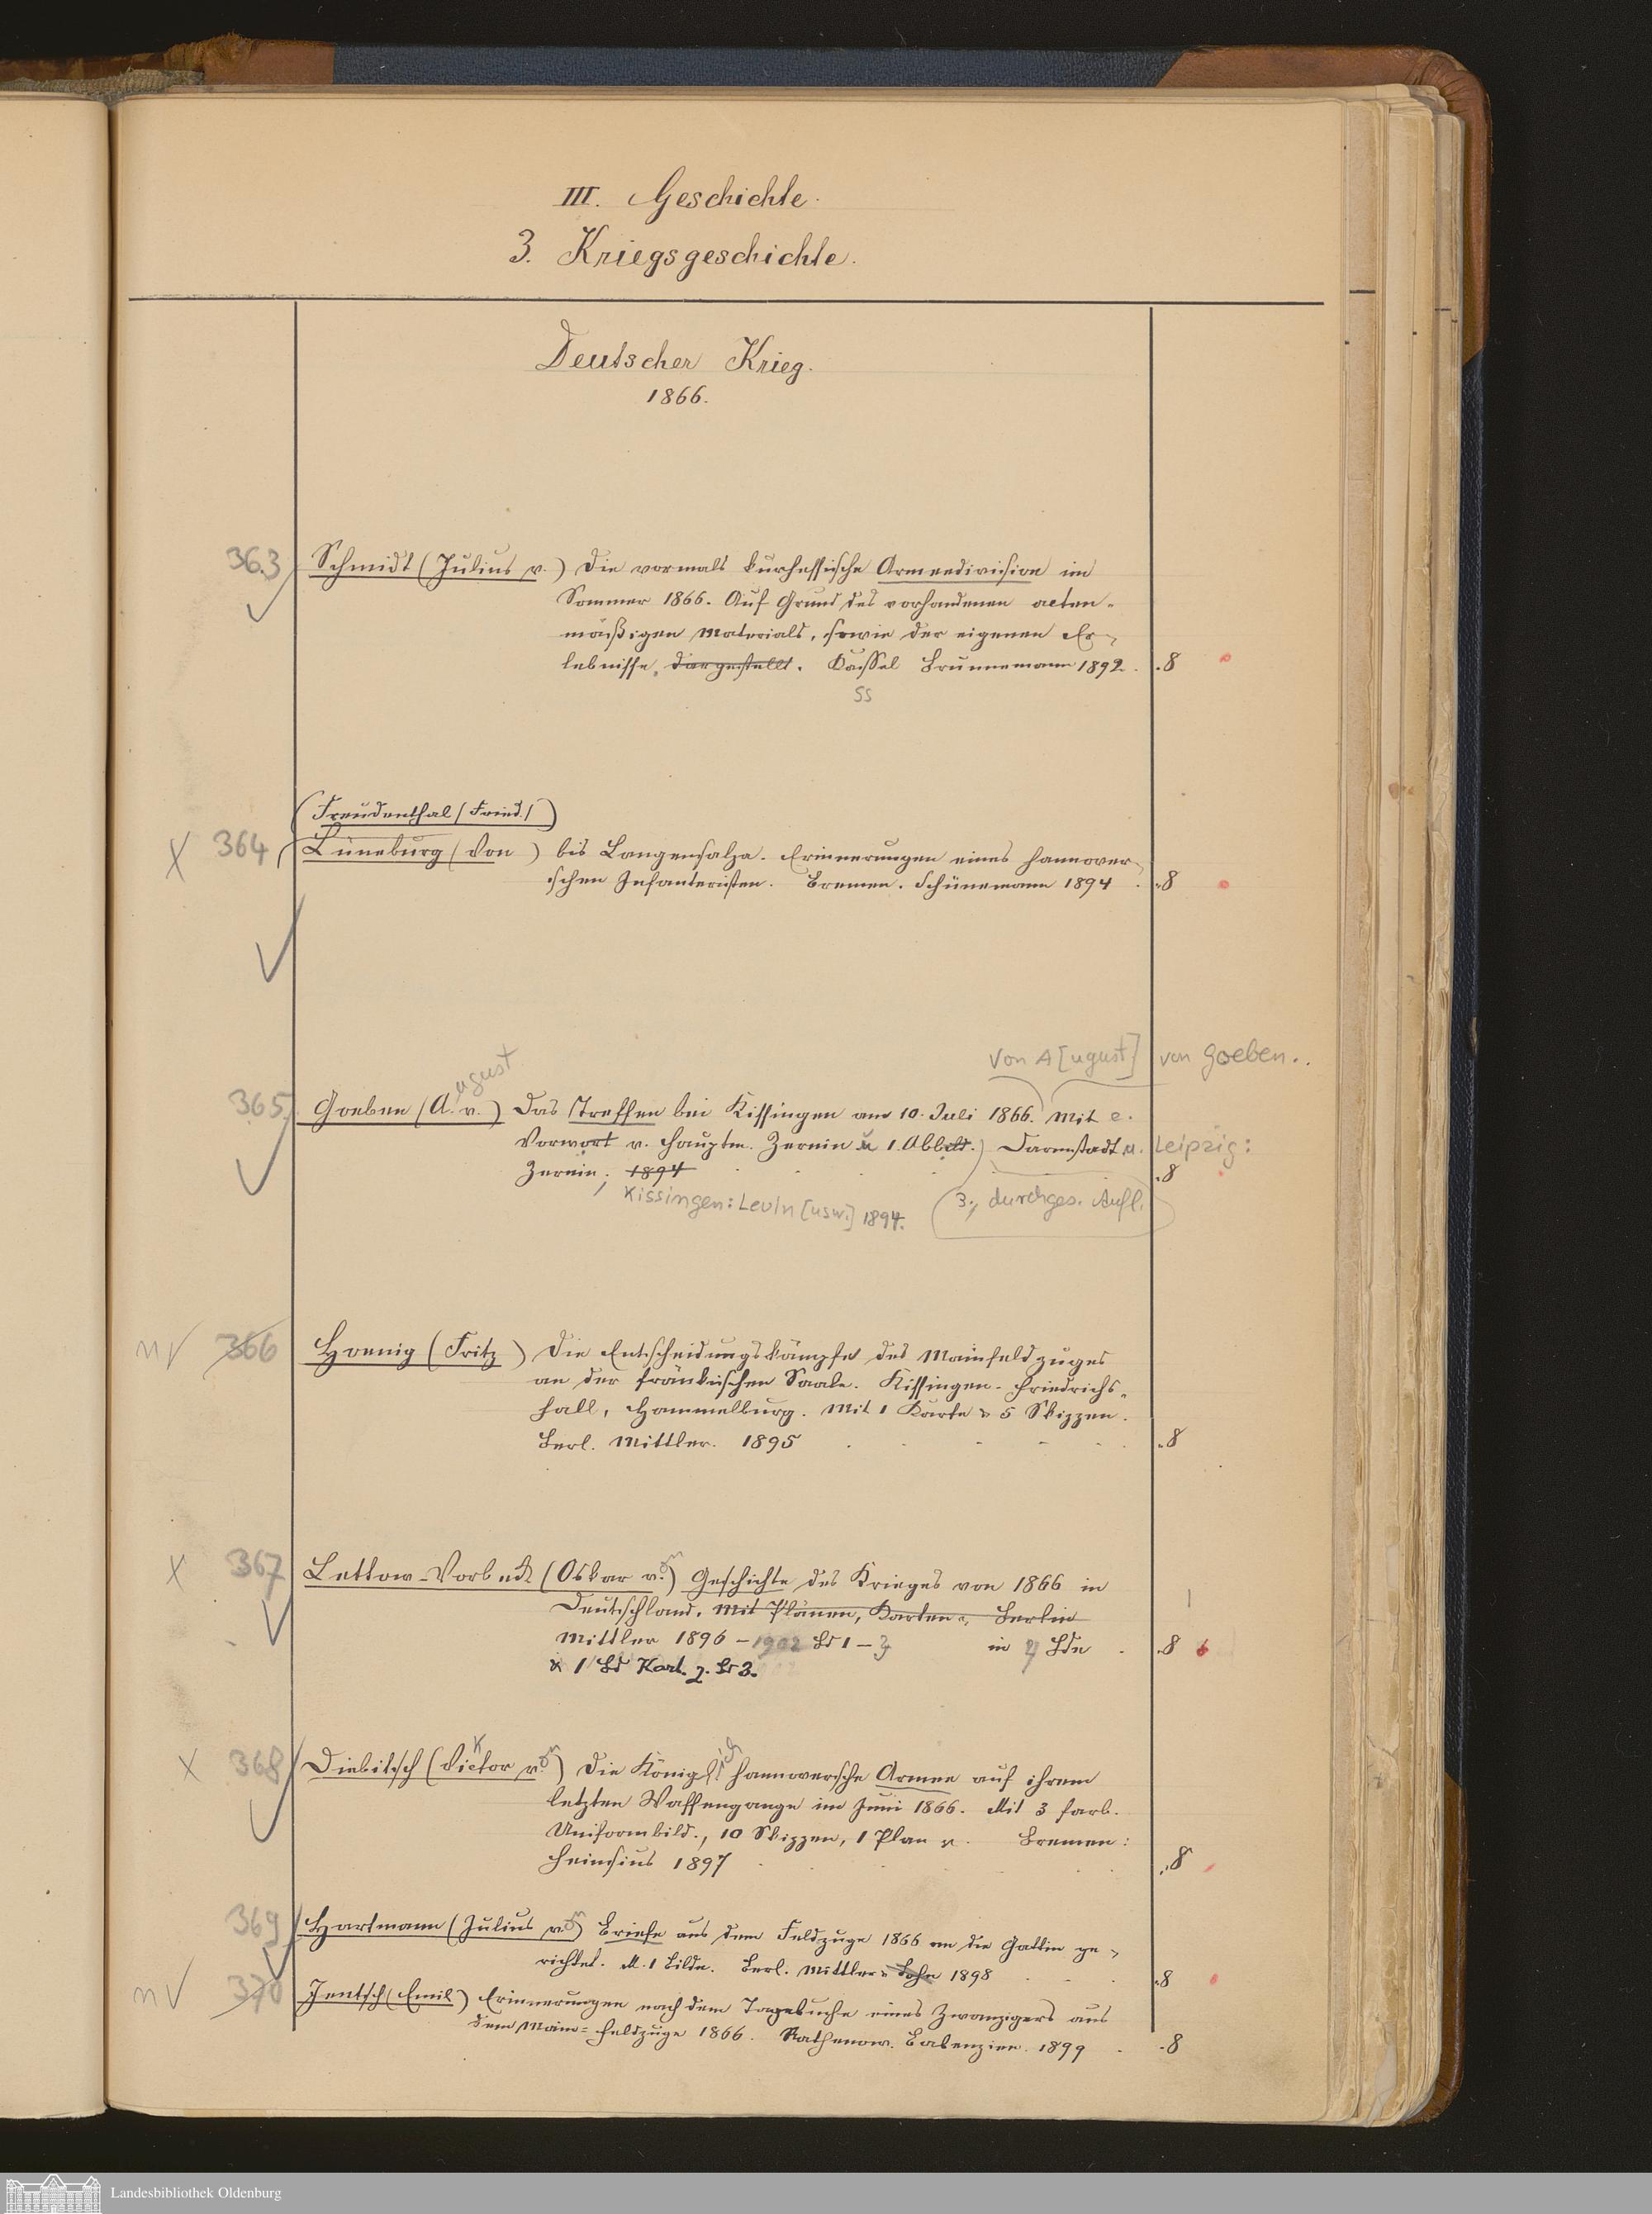 III. Geschichte.
3. Kriegsgeschichte.
Deutscher Krieg.
1866.
363 Schmidt (Julius v.) Die vormals kurhessische Armeedivision im
Sommer 1866. Auf Grund des vorhandenen acten-
mäßigen Materials, sowie der eigenen Er-
lebnisse, dargestellt. Cassel Brunnemann 1892. 8
ss
(Freudenthal (Fried.))
X 364 Lüneburg (Von) bis Langensalza. Erinnerungen eines hannover-
schen Infanteristen. Bremen. Schünemann 1894. 8
Von A[ugust] von Goeben..
ugust
365 Goeben (A. v.) Das Treffen bei Kissingen am 10. Juli 1866. Mit e.
Vorwort v. Hauptm. Zernin u 1. Abbdt.) Darmstadt u. Leipzig:
Zernin; 1894 8
Kissingen: Levin [usw.] 1894. (3., durchges. Aufl.
n V 366 Hoenig (Fritz) Die Entscheidungskämpfe des Mainfeldzuges
an der fränkischen Saale. Kissingen-Friedrichs-
hall, Hammelburg. Mit 1 Karte & 5 Skizzen.
Berl. Mittler. 1895 8
X 367 Lettow-Vorbeck (Oskar v.) Geschichte des Krieges von 1866 in
Deutschland. Mit Plänen, Karten Berlin
Mittler 1896-1902 Bd 1-3 in Bdn 8
& 1 Bd Kart. z. Bd 3.
X 368 Diebitsch (Victor v.) Die Königlich hannoversche Armee auf ihrem
letzten Waffengange im Juni 1866. Mit 3 farb.
Uniformbild., 10 Skizzen, 1 Plan Bremen:
Heinsius 1897 8
369 Hartmann (Julius v.) Briefe aus dem Feldzuge 1866 an die Gattin ge-
richtet. M. 1 Bilde. Berl. Mittler & Sohn 1898 8
n V 370 Jentsch (Emil) Erinnerungen nach dem Tagebuche eines Zwanzigers aus
dem Main-Feldzuge 1866. Rathenow. Babenzien. 1899 8
Landesbibliothek Oldenburg